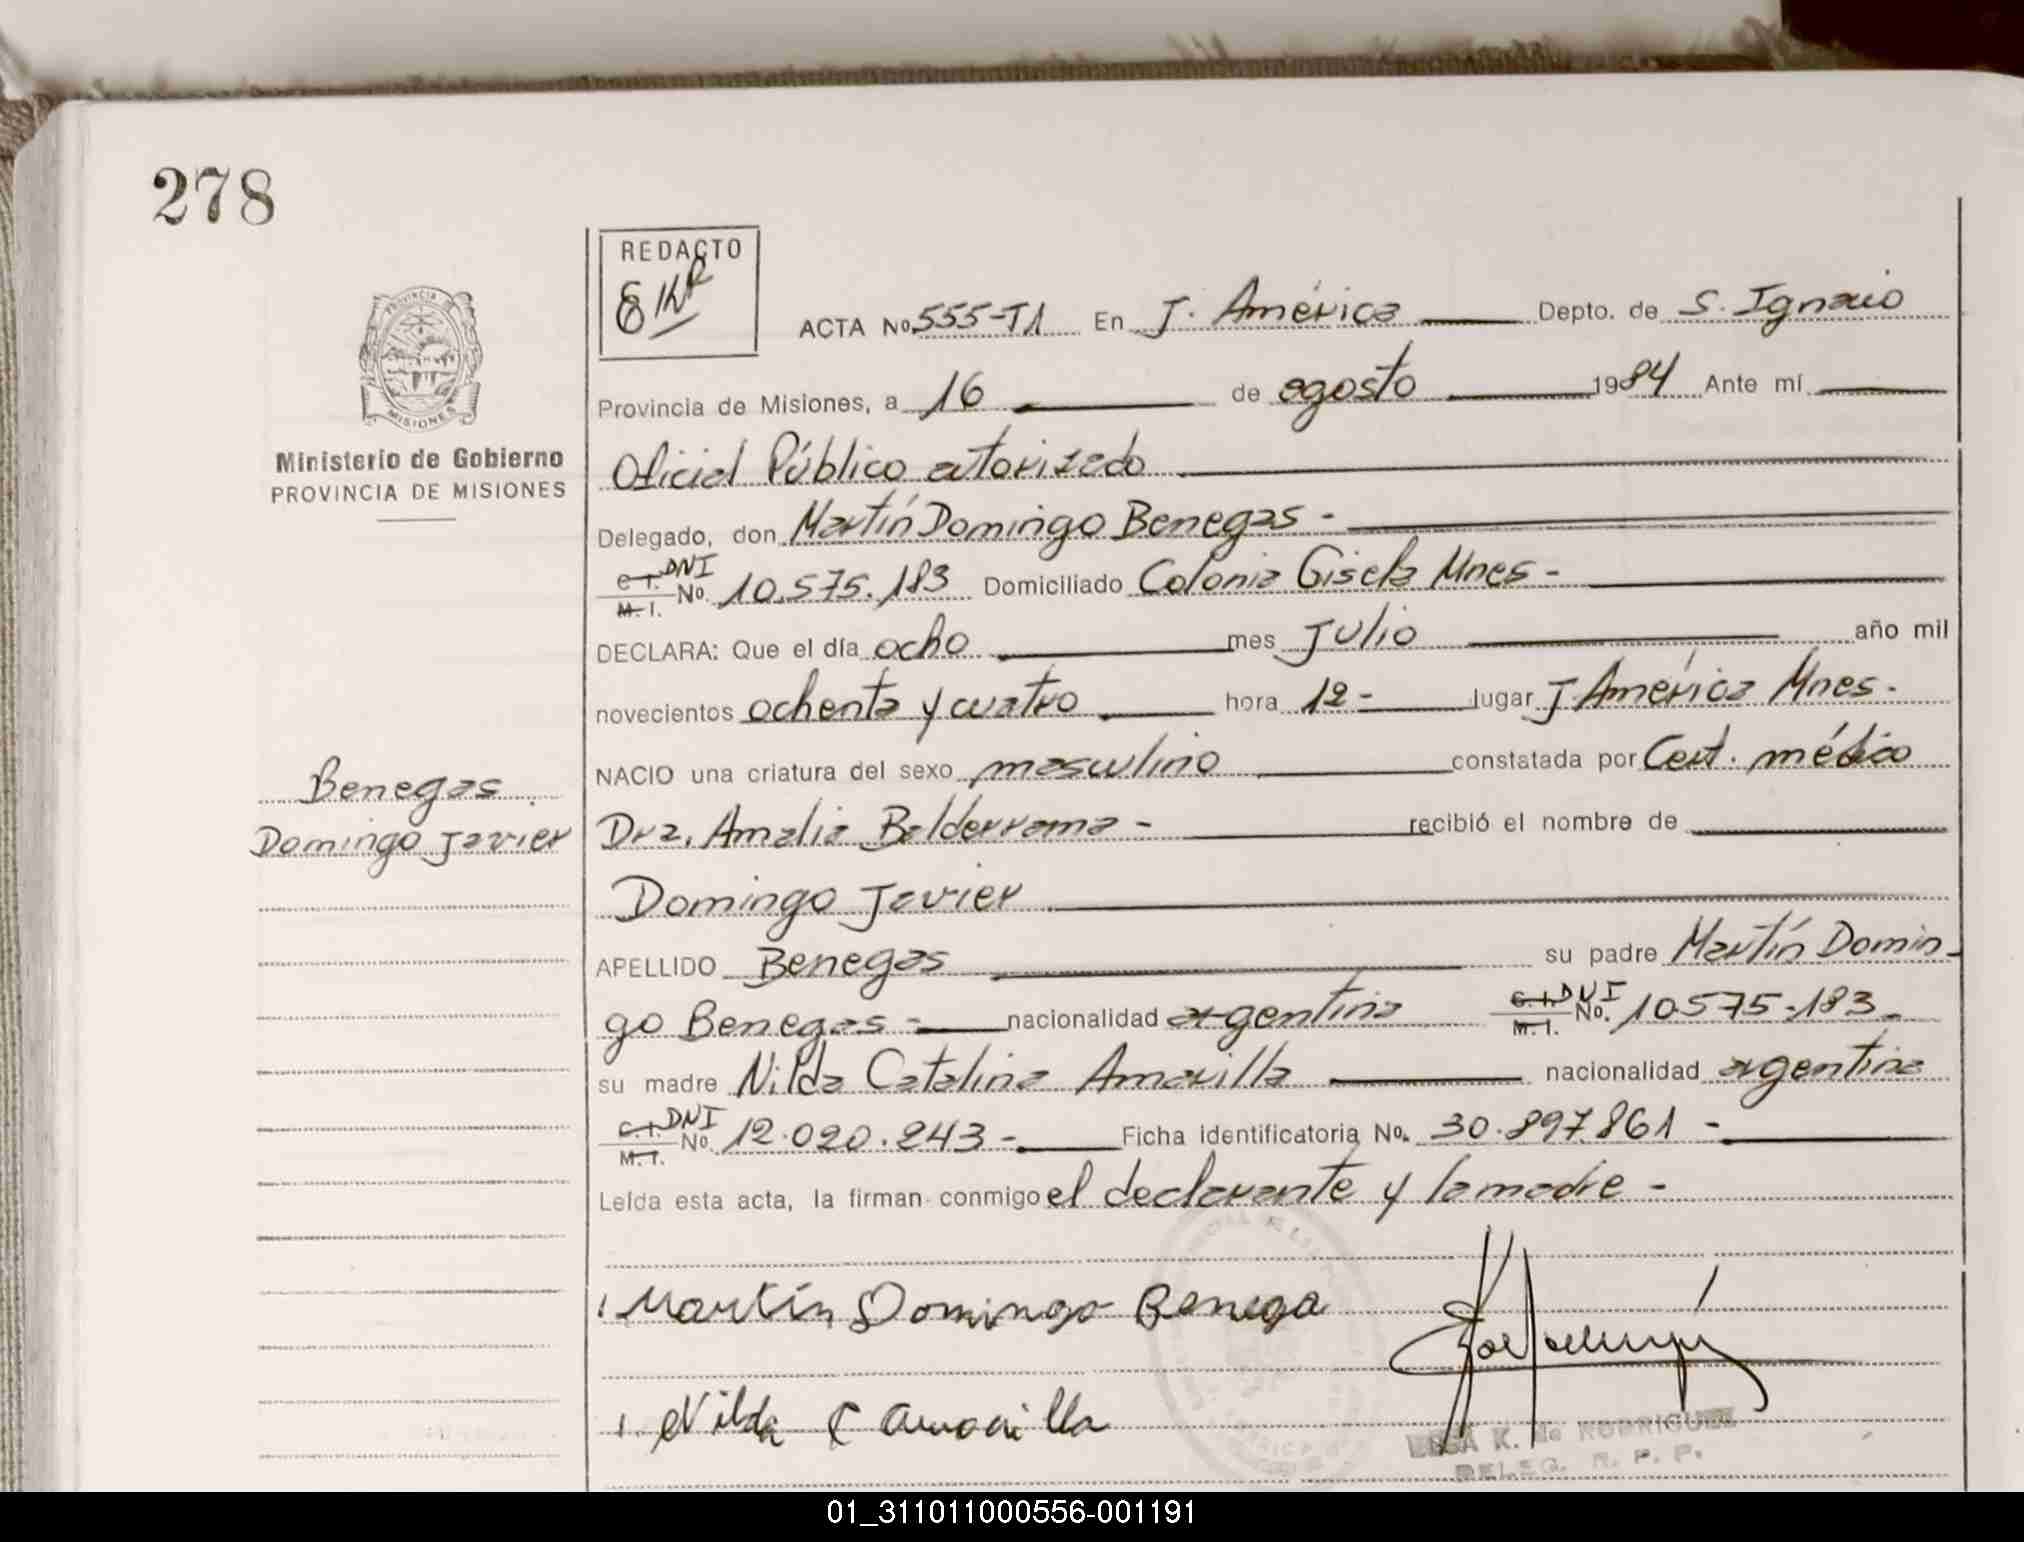 278
REDACTO
PROVINCIA DE
MISIONES
ACTA No. 555-T1 En J. América Depto. de S. Ignacio
Provincia de Misiones, a 16 de agosto 1984 Ante mí
Ministerio de Gobierno
PROVINCIA DE MISIONES
Oficial Público autorizado
Delegado, don Martín Domingo Benegas -
C.I. DNI
M.I. No. 10.575.183 Domiciliado Colonia Gisela Mnes -
DECLARA: Que el día ocho mes Julio año mil
novecientos ochenta y cuatro hora 12 - lugar J América Mnes -
NACIO una criatura del sexo masculino constatada por Cert. médico
Benegas
Domingo Javier
Dra. Amalia Balderrama - recibió el nombre de
Domingo Javier
APELLIDO Benegas su padre Martín Domin-
go Benegas - nacionalidad argentina C.I. DNI M.I. No. 10.575.183 -
su madre Nilda Catalina Amarilla nacionalidad argentina
C.I. DNI
M.I. No. 12.020.243 - Ficha identificatoria No. 30.897.861 -
Leída esta acta, la firman conmigo el declarante y la madre -
Martín Domingo Benega
Nilda C Amarilla
K. de RODRIGUEZ
DELEG. R. P. P.
01_311011000556-001191